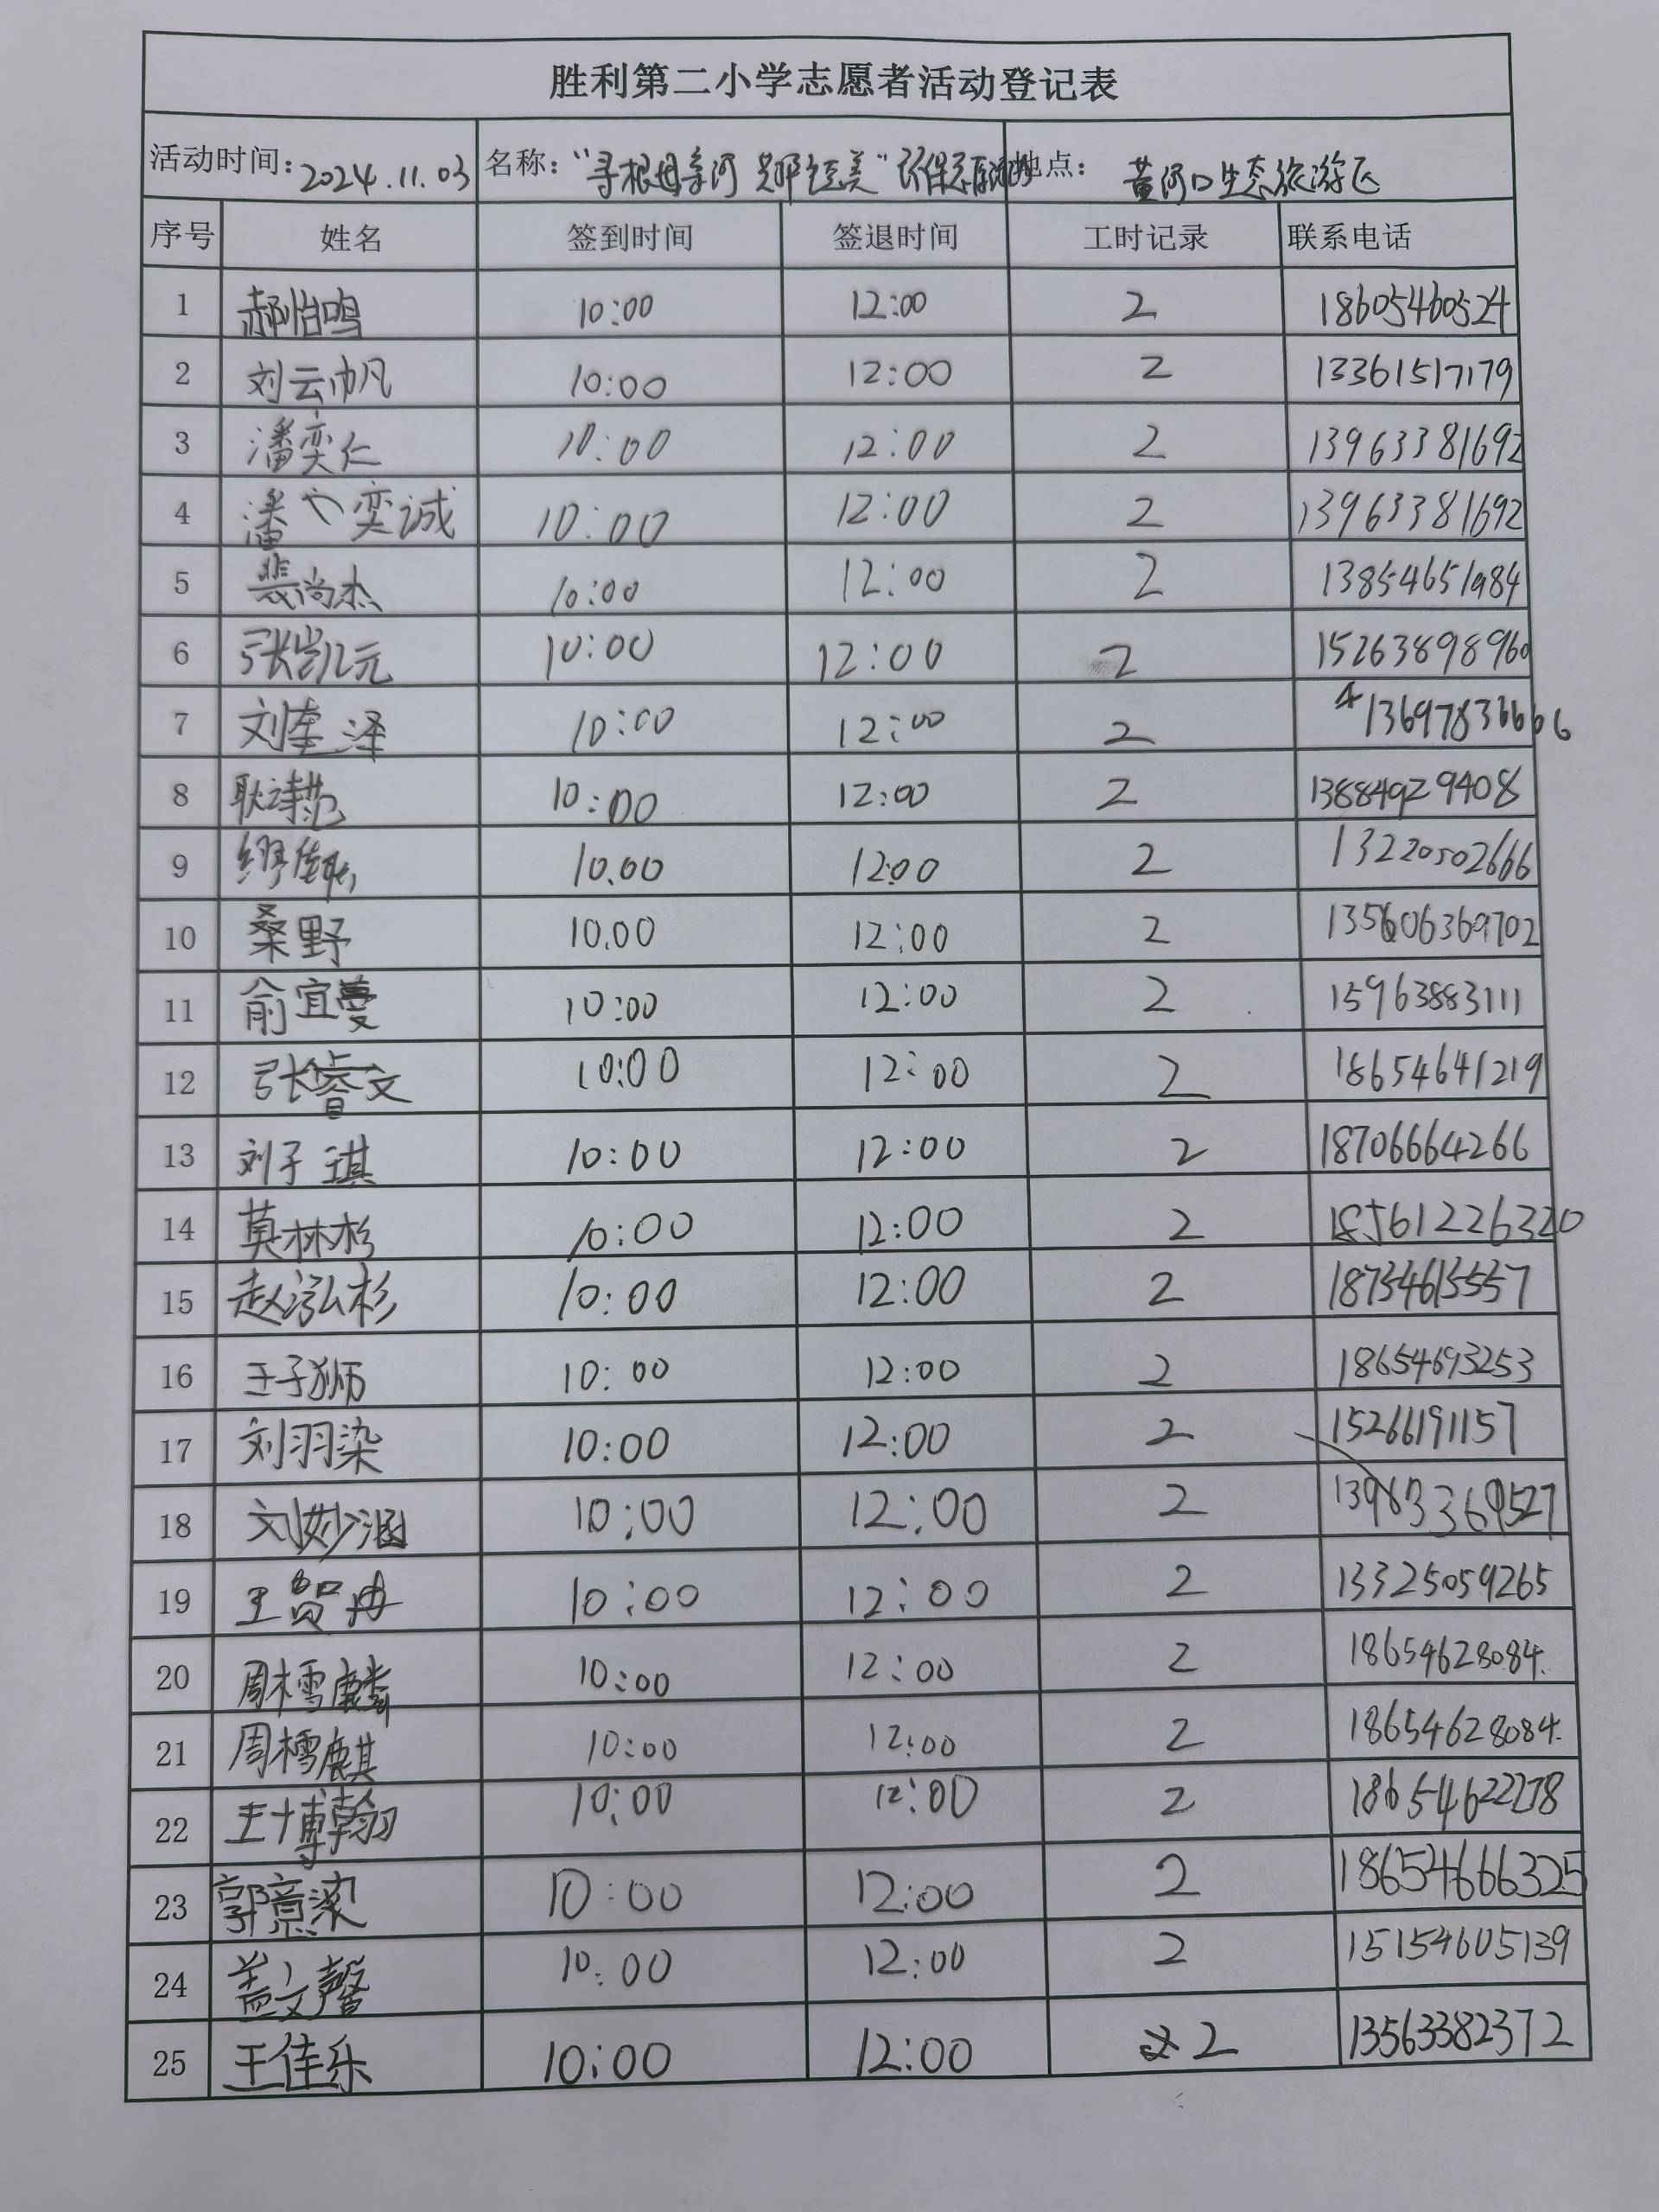 胜利第二小学志愿者活动登记表
活动时间: 2024.11.03 名称: “寻根母亲河 美” 环保志愿活动 地点: 黄河口生态旅游区
序号 姓名 签到时间 签退时间 工时记录 联系电话
1 郝怡鸣 10:00 12:00 2 18605460524
2 刘云帆 10:00 12:00 2 13361517179
3 潘奕仁 10:00 12:00 2 13963381692
4 潘奕诚 10:00 12:00 2 13963381692
5 裴尚杰 10:00 12:00 2 13854651984
6 张凯元 10:00 12:00 2 15263898960
7 刘奎泽 10:00 12:00 2 13697836666
8 耿诗 10:00 12:00 2 13884929408
9 缪 10.00 12:00 2 13220502666
10 桑野 10.00 12:00 2
11 俞宜蔓 10:00 12:00 2 15963883111
12 张睿文 10:00 12:00 2 18654641219
13 刘子琪 10:00 12:00 2 18706664266
14 莫林杉 10:00 12:00 2
15 赵泓杉 10:00 12:00 2
16 王子狮 10:00 12:00 2 18654693253
17 刘羽染 10:00 12:00 2 15266191157
18 刘妙涵 10:00 12:00 2
19 王贺冉 10:00 12:00 2 13325059265
20 周樰麟 10:00 12:00 2 18654628084.
21 周樰麒 10:00 12:00 2 18654628084.
22 王博翰 10:00 12:00 2
23 郭意 10:00 12:00 2 18654666325
24 盖文馨 10:00 12:00 2 15154605139
25 王佳乐 10:00 12:00 2 13563382372